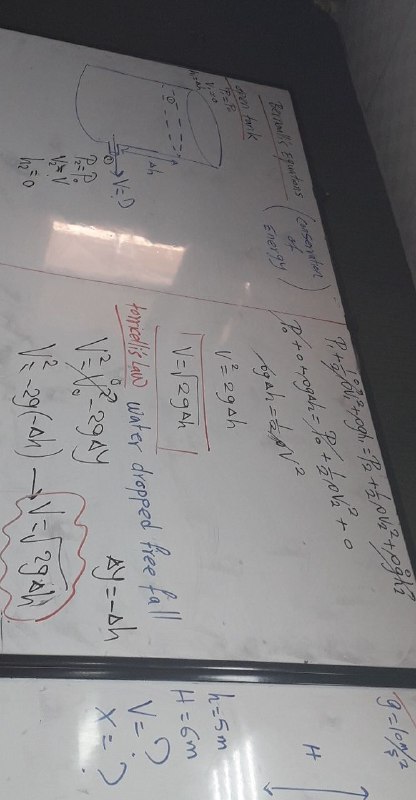 Bernoulli's Equations (Conservation of Energy)
open tank
P₁ = P₀
V₁ = 0
h₁ = Δh
Δh
V = ?
P₂ = P₀
V₂ = V
h₂ = 0
P₁ + ½ρV₁² + ρgh₁ = P₂ + ½ρV₂² + ρgh₂
P₀ + 0 + ρgΔh = P₀ + ½ρV₂² + 0
ρgΔh = ½ρV²
V² = 2gΔh
V = √2gΔh
torricelli's law
water dropped free fall
V² = V₀² - 2gΔy
Δy = -Δh
V² = -2g(-Δh) → V = √2gΔh
g = 10 m/s²
H
h = 5m
H = 6m
V = ?
X = ?